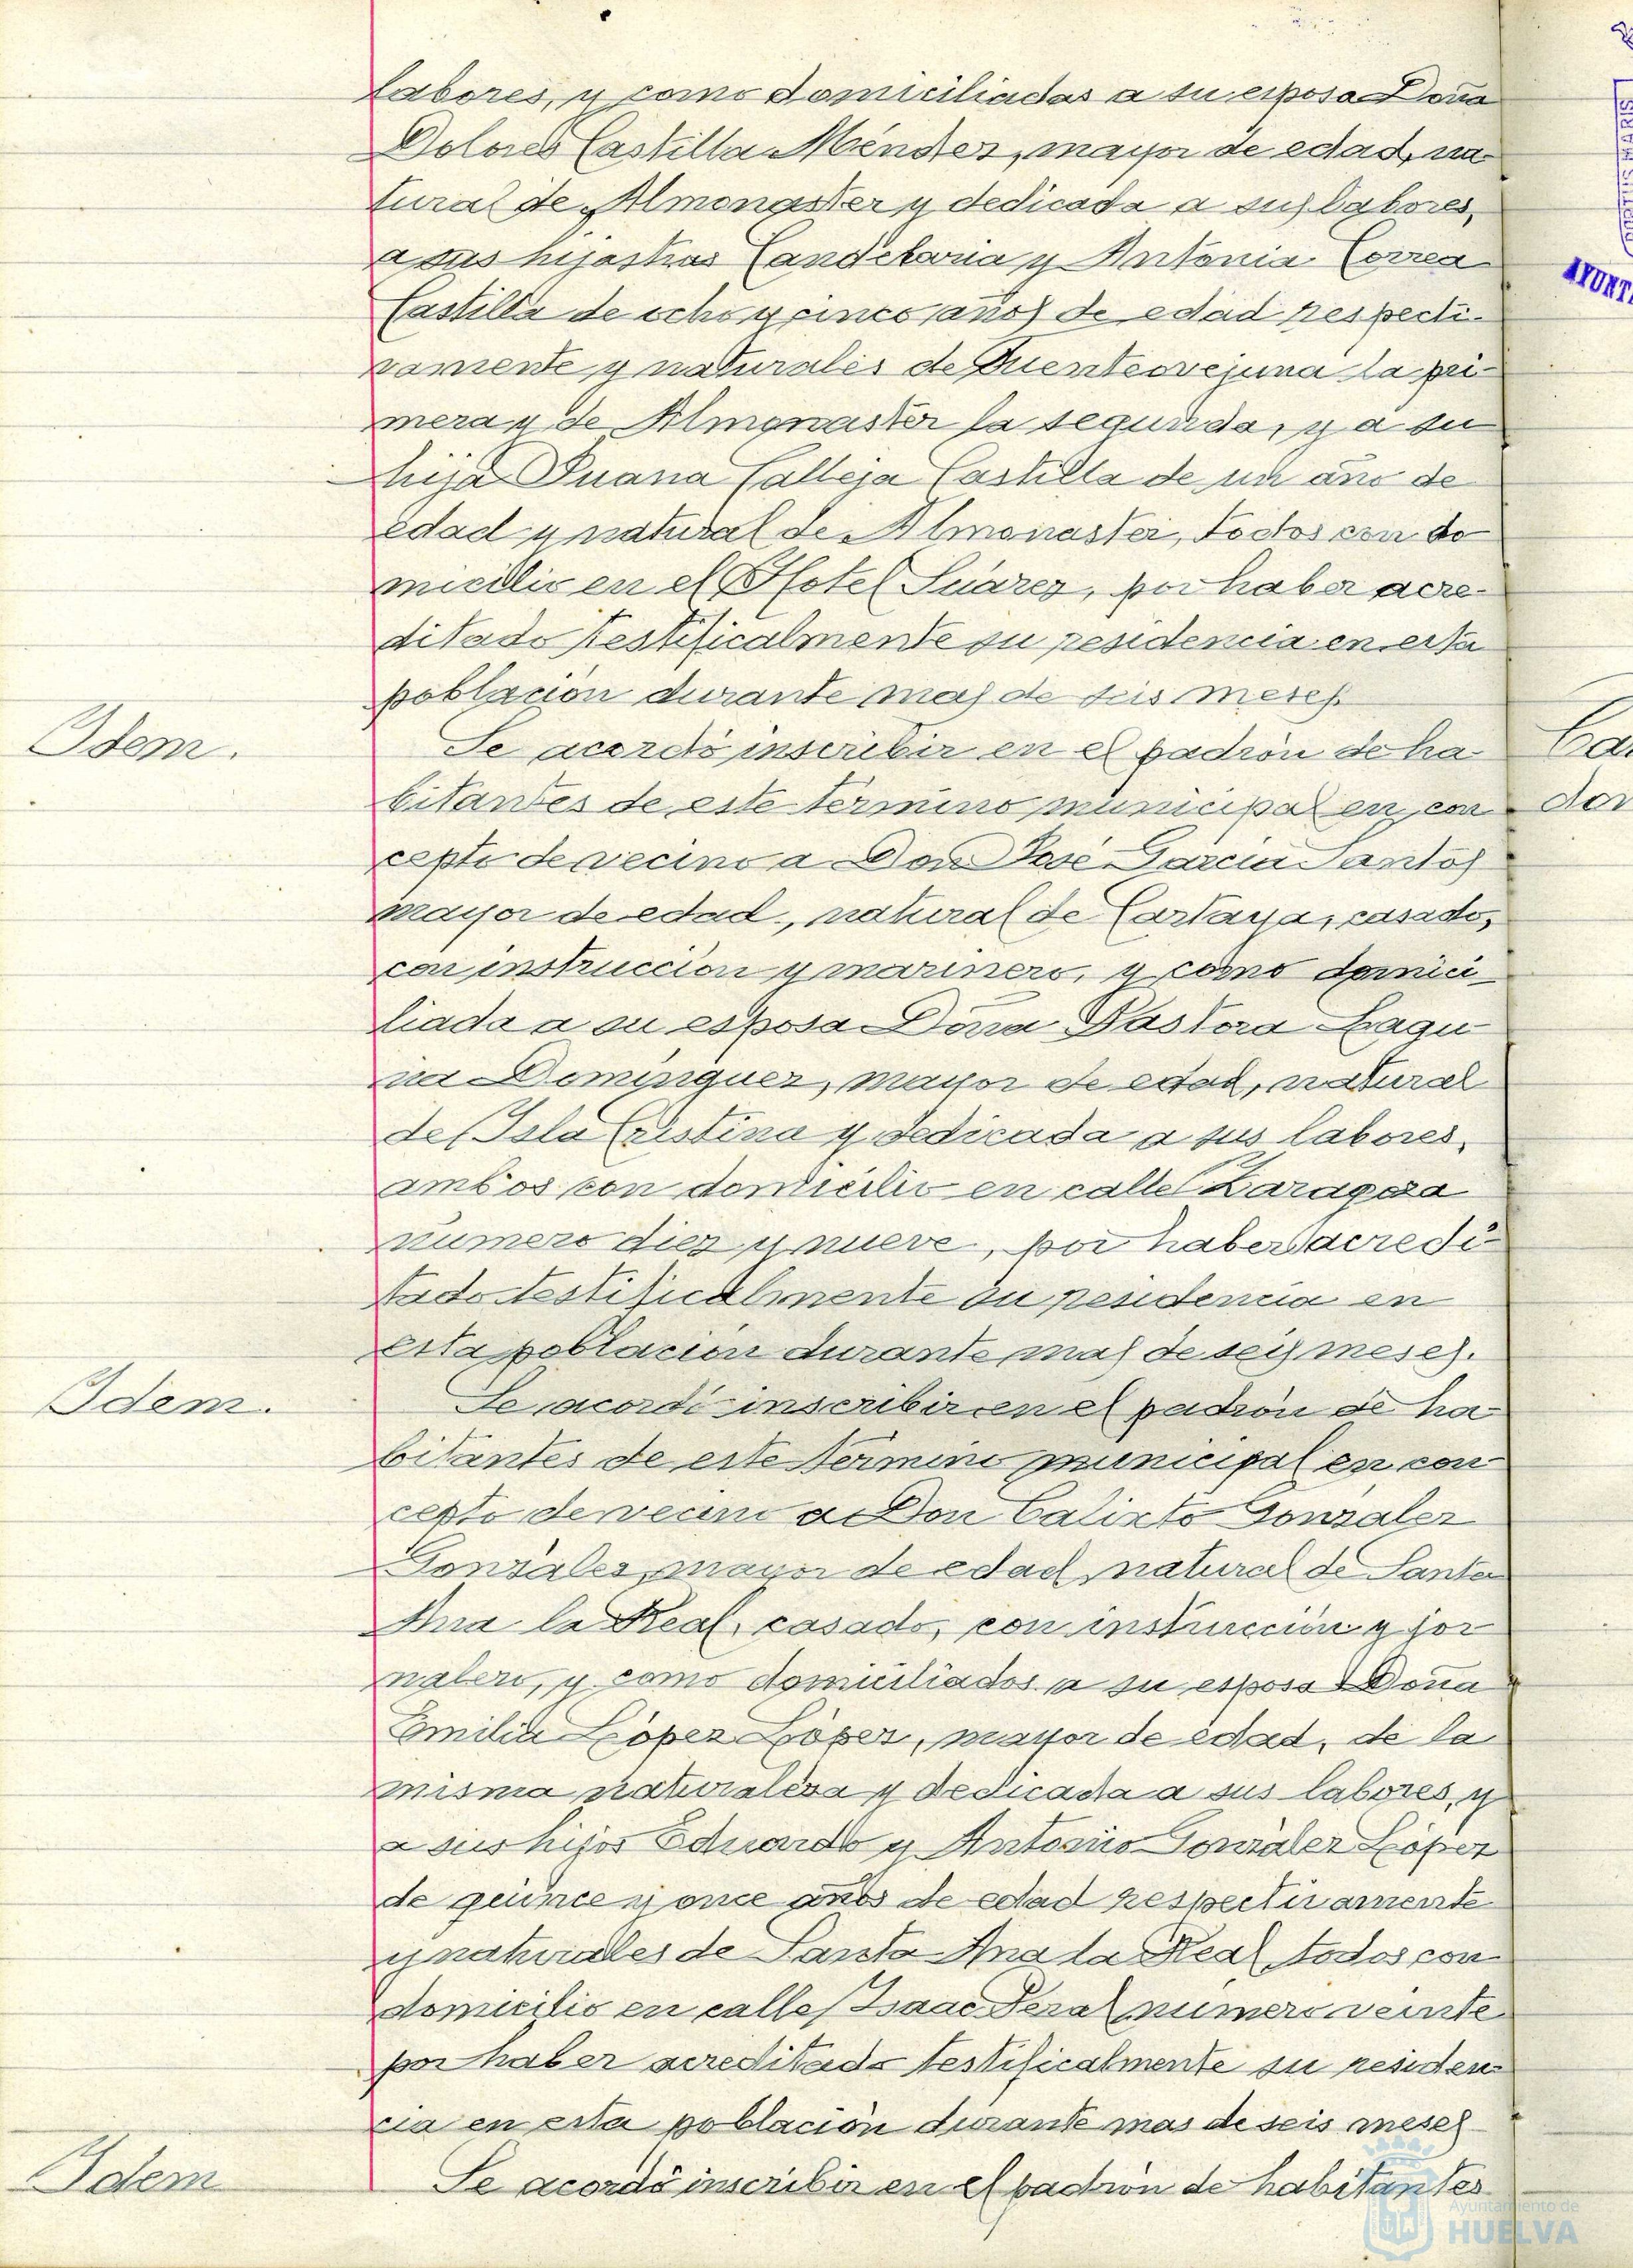 labores, y como domiciliadas a su esposa Doña
Dolores Castilla Méndez, mayor de edad, na-
tural de Almonaster y dedicada a sus labores,
a sus hijastras Candelaria y Antonia Correa
Castilla de ocho y cinco años de edad respecti-
vamente y naturales de Fuenteovejuna la pri-
mera y de Almonaster la segunda, y a su
hija Juana Calleja Castilla de un año de
edad y natural de Almonaster, todos con do
micilio en el Hotel Suárez, por haber acre-
ditado testificalmente su residencia en esta
población durante mas de seis meses.
Idem.
Se acordó inscribir en el padrón de ha-
bitantes de este término municipal en con
cepto de vecino a Don José Garcia Santos
mayor de edad, natural de Cartaya, casado,
con instrucción y marinero, y como domici-
liada a su esposa Doña Pastora Lagu
na Dominguez, mayor de edad, natural
de Isla Cristina y dedicada a sus labores,
ambos con domicilio en calle Zaragoza
número diez y nueve, por haber acredi-
tado testificalmente su residencia en
esta poblacion durante mas de seis meses.
Idem.
Se acordó inscribir en el padrón de ha-
bitantes de este término municipal en con
cepto de vecino a Don Calixto González
González, mayor de edad, natural de Santa
Ana la Real, casado, con instrucción y jor
nalero, y como domiciliados a su esposa Doña
Emilia López López, mayor de edad, de la
misma naturaleza y dedicada a sus labores, y
a sus hijos Eduardo y Antonio González López
de quince y once años de edad respectivamente
y naturales de Santa Ana la Real, todos con
domicilio en calle Isaac Peral número veinte
por haber acreditado testificalmente su residen-
cia en esta población durante mas de seis meses
Idem
Se acordó inscribir en el padrón de habitantes
Ayuntamiento de
HUELVA
AYUNT